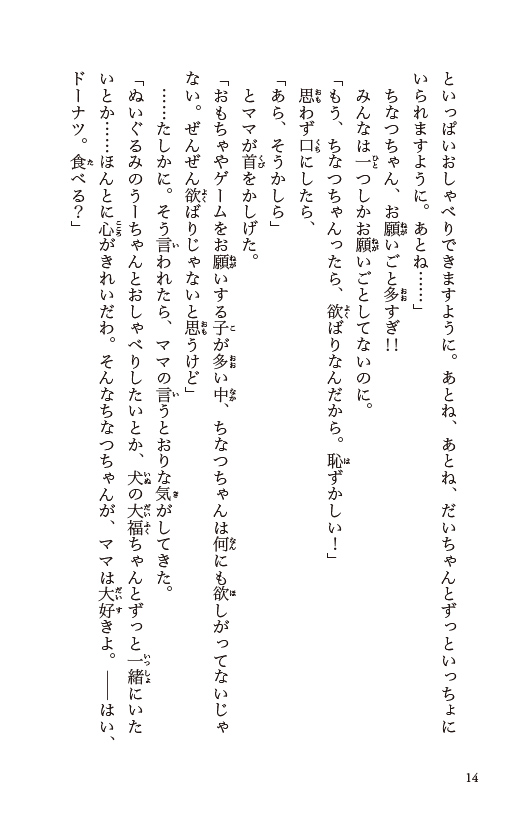 といっぱいおしゃべりできますように。あとね、あとね、だいちゃんとずっといっちょに
いられますように。あとね……」
ちなつちゃん、お願いごと多すぎ!!
みんなは一つしかお願いごとしてないのに。
「もう、ちなつちゃんったら、欲ばりなんだから。恥ずかしい！」
思わず口にしたら、
「あら、そうかしら」
とママが首をかしげた。
「おもちゃやゲームをお願いする子が多い中、ちなつちゃんは何にも欲しがってないじゃ
ない。ぜんぜん欲ばりじゃないと思うけど」
……たしかに。そう言われたら、ママの言うとおりな気がしてきた。
「ぬいぐるみのうーちゃんとおしゃべりしたいとか、犬の大福ちゃんとずっと一緒にいた
いとか……ほんとに心がきれいだわ。そんなちなつちゃんが、ママは大好きよ。――はい、
ドーナツ。食べる？」
14